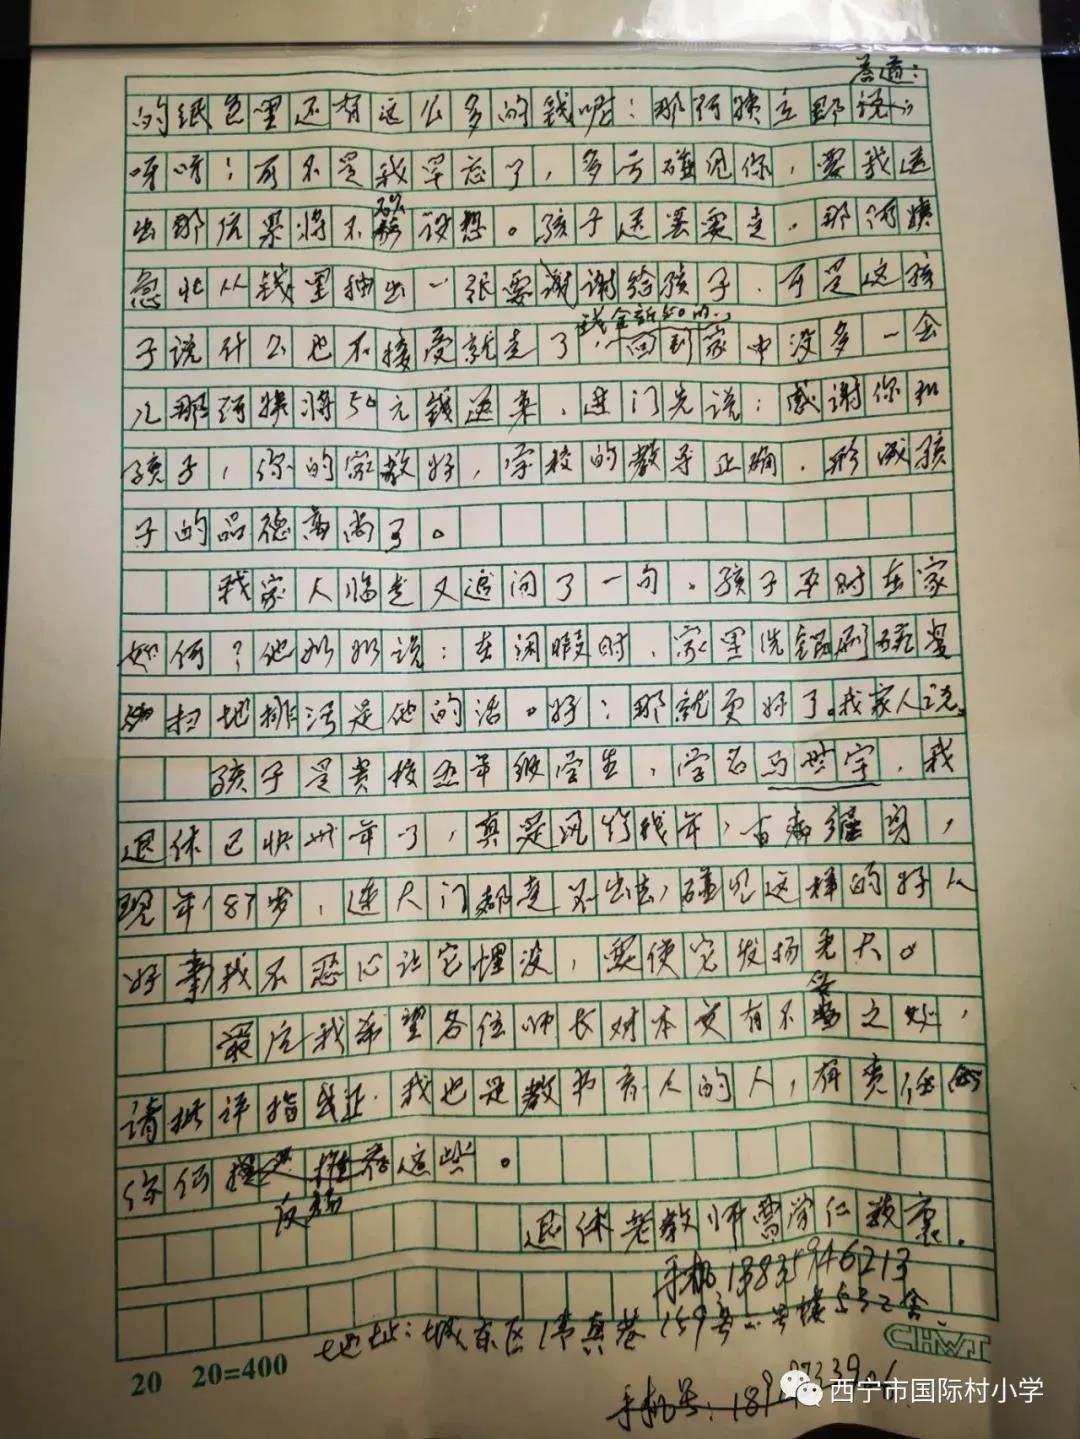 答道：
的纸包里还有这么多的钱呢：那阿姨立那说
呀呀！可不是我罕忘了，多亏碰见你，要我送
出那后果将不堪设想。孩子送罢要走，那阿姨
急忙从钱里抽出一张要谢谢给孩子，可是这孩
子说什么也不接受就走了，回到家中没多一会
儿那阿姨将50元钱送来，进门先说：感谢你和
孩子，你的家教好，学校的教导正确，形成孩
子的品德高尚了。
我家人临走又追问了一句。孩子平时在家
如何？他奶奶说：在闲暇时，家里洗锅刷碗
扫地排污是他的活。好：那就更好了。我家人说
孩子是贵校五年级学生，学名马世宇，我
退休已快卅年了，真是风竹残年，百病缠身，
现年87岁，连大门都走不出去，碰见这样的好人
好事我不忍心让它埋没，要使它发扬光大。
最后我希望各位师长对本文有不妥之处，
请批评指正。我也是教书育人的人，有责任向
你们反扬这些。
退休老教师曹学仁敬禀。
手机13835946213
地址：城东区清真巷159号
20 20=400
CHWT
手机号：
西宁市国际村小学